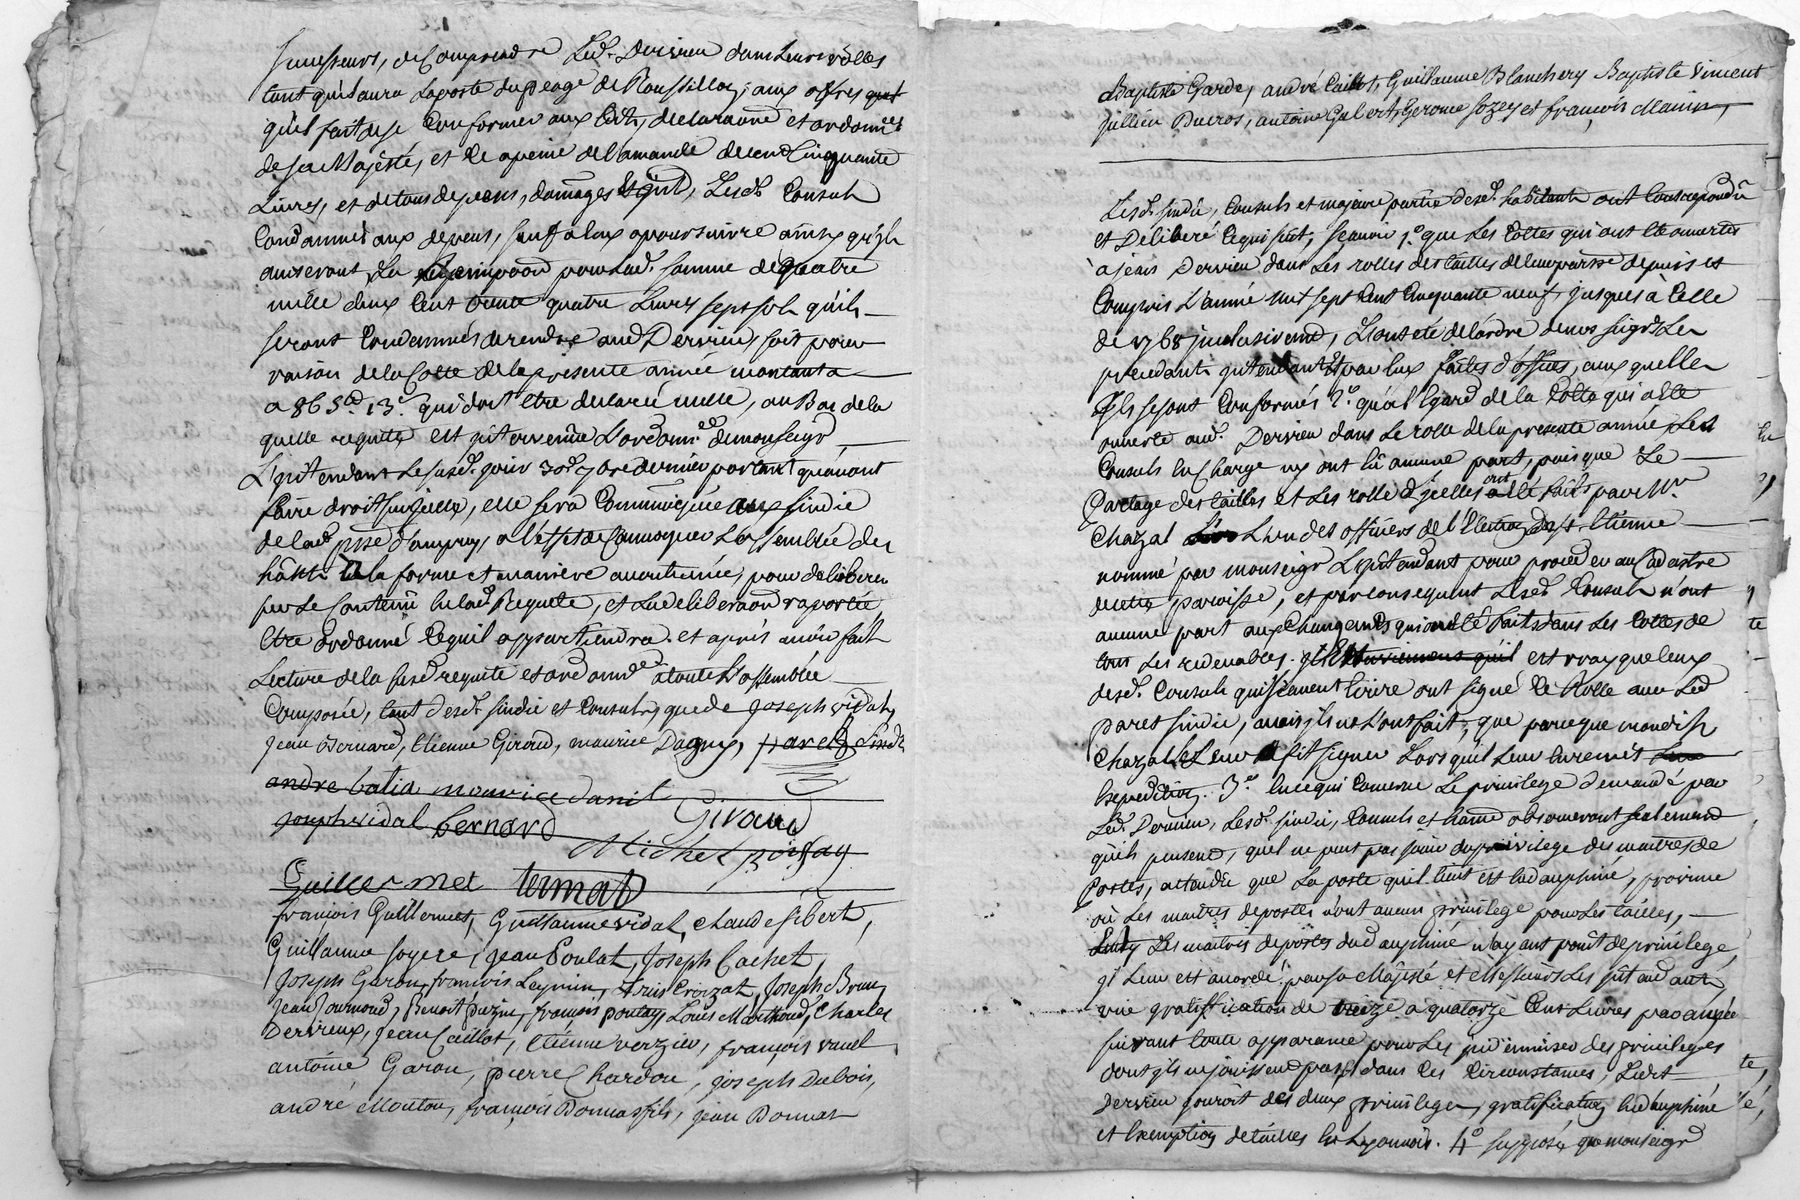 successeurs, de Comprendre Led. Dervieu dans leurs rôlles
tant qu'il aura la poste du peage de Roussillon, aux offres
qu'il fait de se Conformer aux Edits, declaraons et ordonnces
de sa Majesté, et Ce a peine de l'amande de cent Cinquante
Livres, et de tous depens, domages Lesd. Consuls
Condamnés aux depens, sauf a Eux a poursuivre ainsy qu'ils
aviseront La pour lad. somme de quatre
mille deux Cent trente quatre Livres sept sols qu'ils
seront Condamnés de rendre aud. Dervieu, soit pour
raison de la Cotte de la presente année montant a
a 865# 13s qui doit Etre declarée nulle, au Bas de la
quelle requette est intervenüe L'ordonnce de monseigr
L'intendant Le susd. jour 30e 7bre dernier portant qu'avant
faire droit sur jcelle, elle sera Communiquée aux sindic
de lad. d'ampuy, a l'effet de Convoquer L'assemblée des
habts a la forme et maniere accoutumée, pour deliberer
sur Le Contenu en lad. Requete, et La deliberaon raportée,
Etre ordonné Cequil appartiendra. et aprés avoir fait
Lecture de la susd. requete et ordonnce a toute L'assemblée
Composée, tant desd. sindic et Consuls, que de Joseph vidal,
Jean Bernard, Etienne Giraud, maurice Dagny, paret sindic
andre batia mouric danit
joseph vidal bernard Giraud
Michel
Guillermet termat
françois Guillermet, Guillaume vidal, Claude gibert,
Guillaume soyere, Jean Poulat, Joseph Cachet,
Joseph Garon, françois Leymin, Crozat, Joseph Brun,
Jean Journoud, Benoit françois pontay, Loüis Marthoud, Charles
Dervieux, Jean Caillot, Etienne verzier, françois vanel
antoine Garon, pierre Chardon, joseph Dubois,
andré Mouton, françois Donnas fils, jean Donnas
Baptiste Garde, andré Caillot, Guillaume Blanchery Baptiste Vincent
Jullien Ducros, antoine Gibert, Gerome Jozey et françois Manin,
Lesd. sindic, Consuls et majeure partie desd. habitants ont
et Déliberé Cequi suit, scavoir 1o que Les Cottes qui ont été ouvertes
a jean Dervieu dans Les rolles des tailles de leur paroisse depuis et
Compris L'année mil sept Cent Cinquante neuf, jusques à Celle
de 1768 inclusivement, L'ont eté de l'ordre de nos seigrs Les
precedants intendants par Eux faites d'offices, aux quelles
Ils se sont Conformés 2o qu'a l'Egard de la Cotte qui a été
ouverte aud. Dervieu dans Le rolle de la presente année, Les
Consuls En Charge n'y ont Eü aucune part, puis que Le
Partage des tailles et Les rolle d'jcelles ont été faits par Mr
Chazal L'un des officiers de l'Election de St Etienne
nommé par monseigr L'intendant pour proceder au Cadastre
de cette paroisse, et par consequent Lesd. Consuls n'ont
aucune part aux changemens qui ont été faits dans Les Cottes de
tous Les redevables. il est vray que Ceux
desd. Consuls qui scavent Ecrire ont signé le Rolle avec Led
paret sindic, mais ils ne L'ont fait, que parce que mondit sr
Chazal Le Leur fit signer Lorsqu'il Leur Envremit
Expedition. 3o En ce qui Concerne Le privilege demandé par
Led. Dervieu, Lesd. sindic, Consuls et habts observeront seulement
qu'ils pensent, quil ne peut pas jouir du privilege des maitres de
Postes, attendu que La poste qu'il tient est En dauphiné, province
où Les maitres de postes n'ont aucun privilege pour Les tailles,
Les maitres de postes du dauphiné n'ayant point de privilege,
il Leur est accordé par sa Majesté et Messieurs Les intendants
une gratiffication de treize a quatorze Cent Livres par année
suivant toute apparance pour Les indemniser des privileges
dont ils ne jouissent pas; dans Ces Circonstances, Ledt
Dervieu jouroit des deux privileges, gratification En dauphiné
et Exemption de tailles En Lyonnois. 4o supposé que monseigr